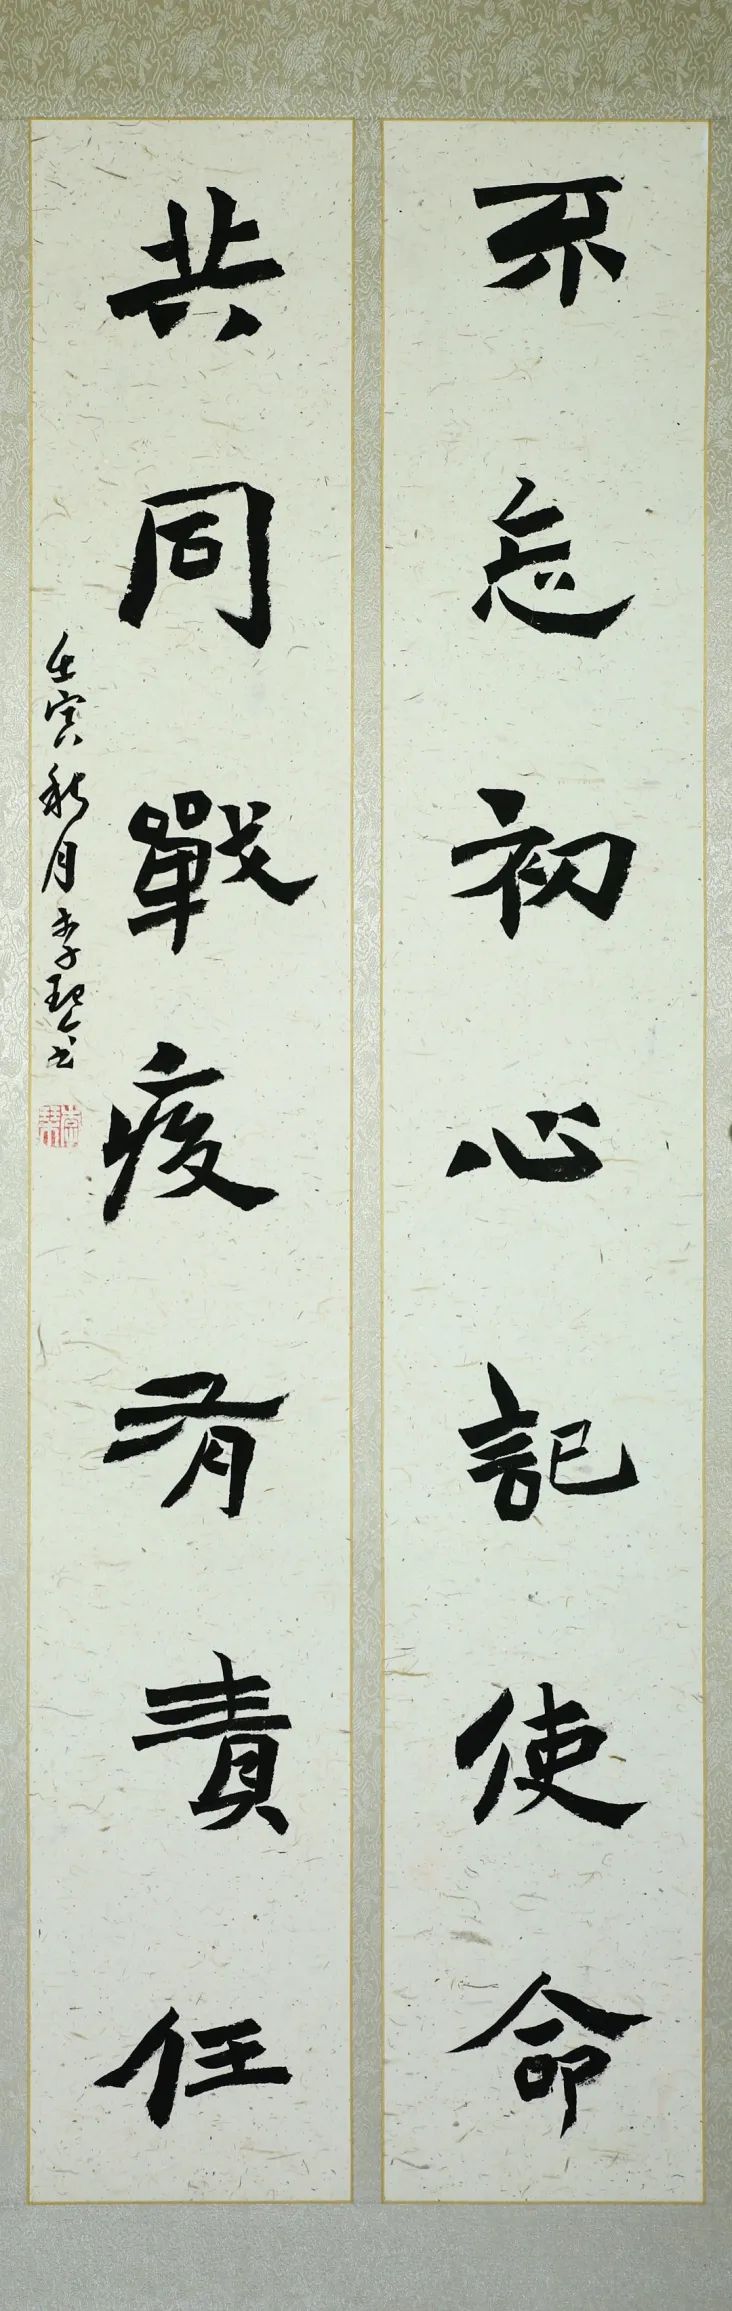 不忘初心記使命
共同戰疫有責任
壬寅秋月李琴書